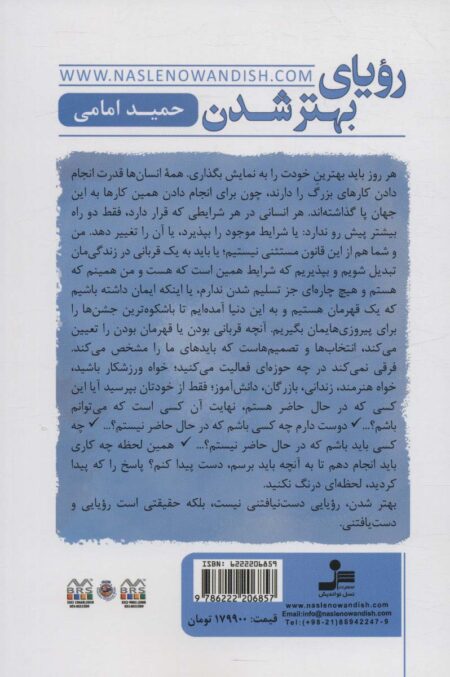 رؤیای
بهتر شدن
WWW.NASLENOWANDISH.COM
حمید امامی
هر روز باید بهترینِ خودت را به نمایش بگذاری. همهٔ انسان‌ها قدرت انجام
دادن کارهای بزرگ را دارند، چون برای انجام دادن همین کارها به این
جهان پا گذاشته‌اند. هر انسانی در هر شرایطی که قرار دارد، فقط دو راه
بیشتر پیش رو ندارد: یا شرایط موجود را بپذیرد، یا آن را تغییر دهد. من
و شما هم از این قانون مستثنی نیستیم؛ یا باید به یک قربانی در زندگی‌مان
تبدیل شویم و بپذیریم که شرایط همین است که هست و من همینم که
هستم و هیچ چاره‌ای جز تسلیم شدن ندارم، یا اینکه ایمان داشته باشیم
که یک قهرمان هستیم و به این دنیا آمده‌ایم تا باشکوه‌ترین جشن‌ها را
برای پیروزی‌هایمان بگیریم. آنچه قربانی بودن یا قهرمان بودن را تعیین
می‌کند، انتخاب‌ها و تصمیم‌هاست که بایدهای ما را مشخص می‌کند.
فرقی نمی‌کند در چه حوزه‌ای فعالیت می‌کنید؛ خواه ورزشکار باشید،
خواه هنرمند، زندانی، بازرگان، دانش‌آموز؛ فقط از خودتان بپرسید آیا این
کسی که در حال حاضر هستم، نهایت آن کسی است که می‌توانم
باشم؟... ✓ دوست دارم چه کسی باشم که در حال حاضر نیستم؟... ✓ چه
کسی باید باشم که در حال حاضر نیستم؟... ✓ همین لحظه چه کاری
باید انجام دهم تا به آنچه باید برسم، دست پیدا کنم؟ پاسخ را که پیدا
کردید، لحظه‌ای درنگ نکنید.
بهتر شدن، رؤیایی دست‌نیافتنی نیست، بلکه حقیقتی است رؤیایی و
دست‌یافتنی.
ISBN: 6222206859
9 786222 206857
قیمت: ۱۷۹۹۰۰ تومان
نسل نواندیش
www.naslenowandish.com
Email:info@naslenowandish.com
Tel:(+98-21)86942247-9
BRS
BRS